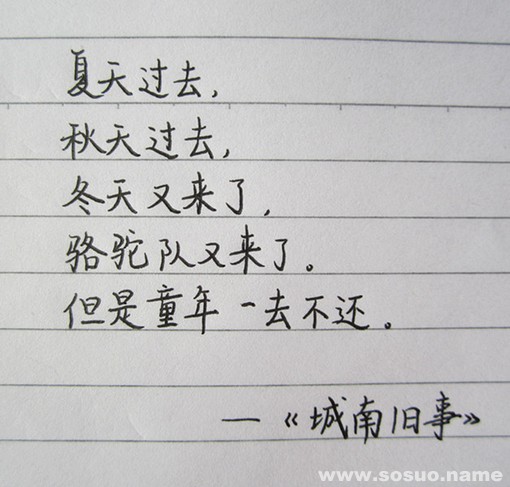 夏天过去,
秋天过去,
冬天又来了,
骆驼队又来了。
但是童年一去不还。
—《城南旧事》
www.sosuo.name